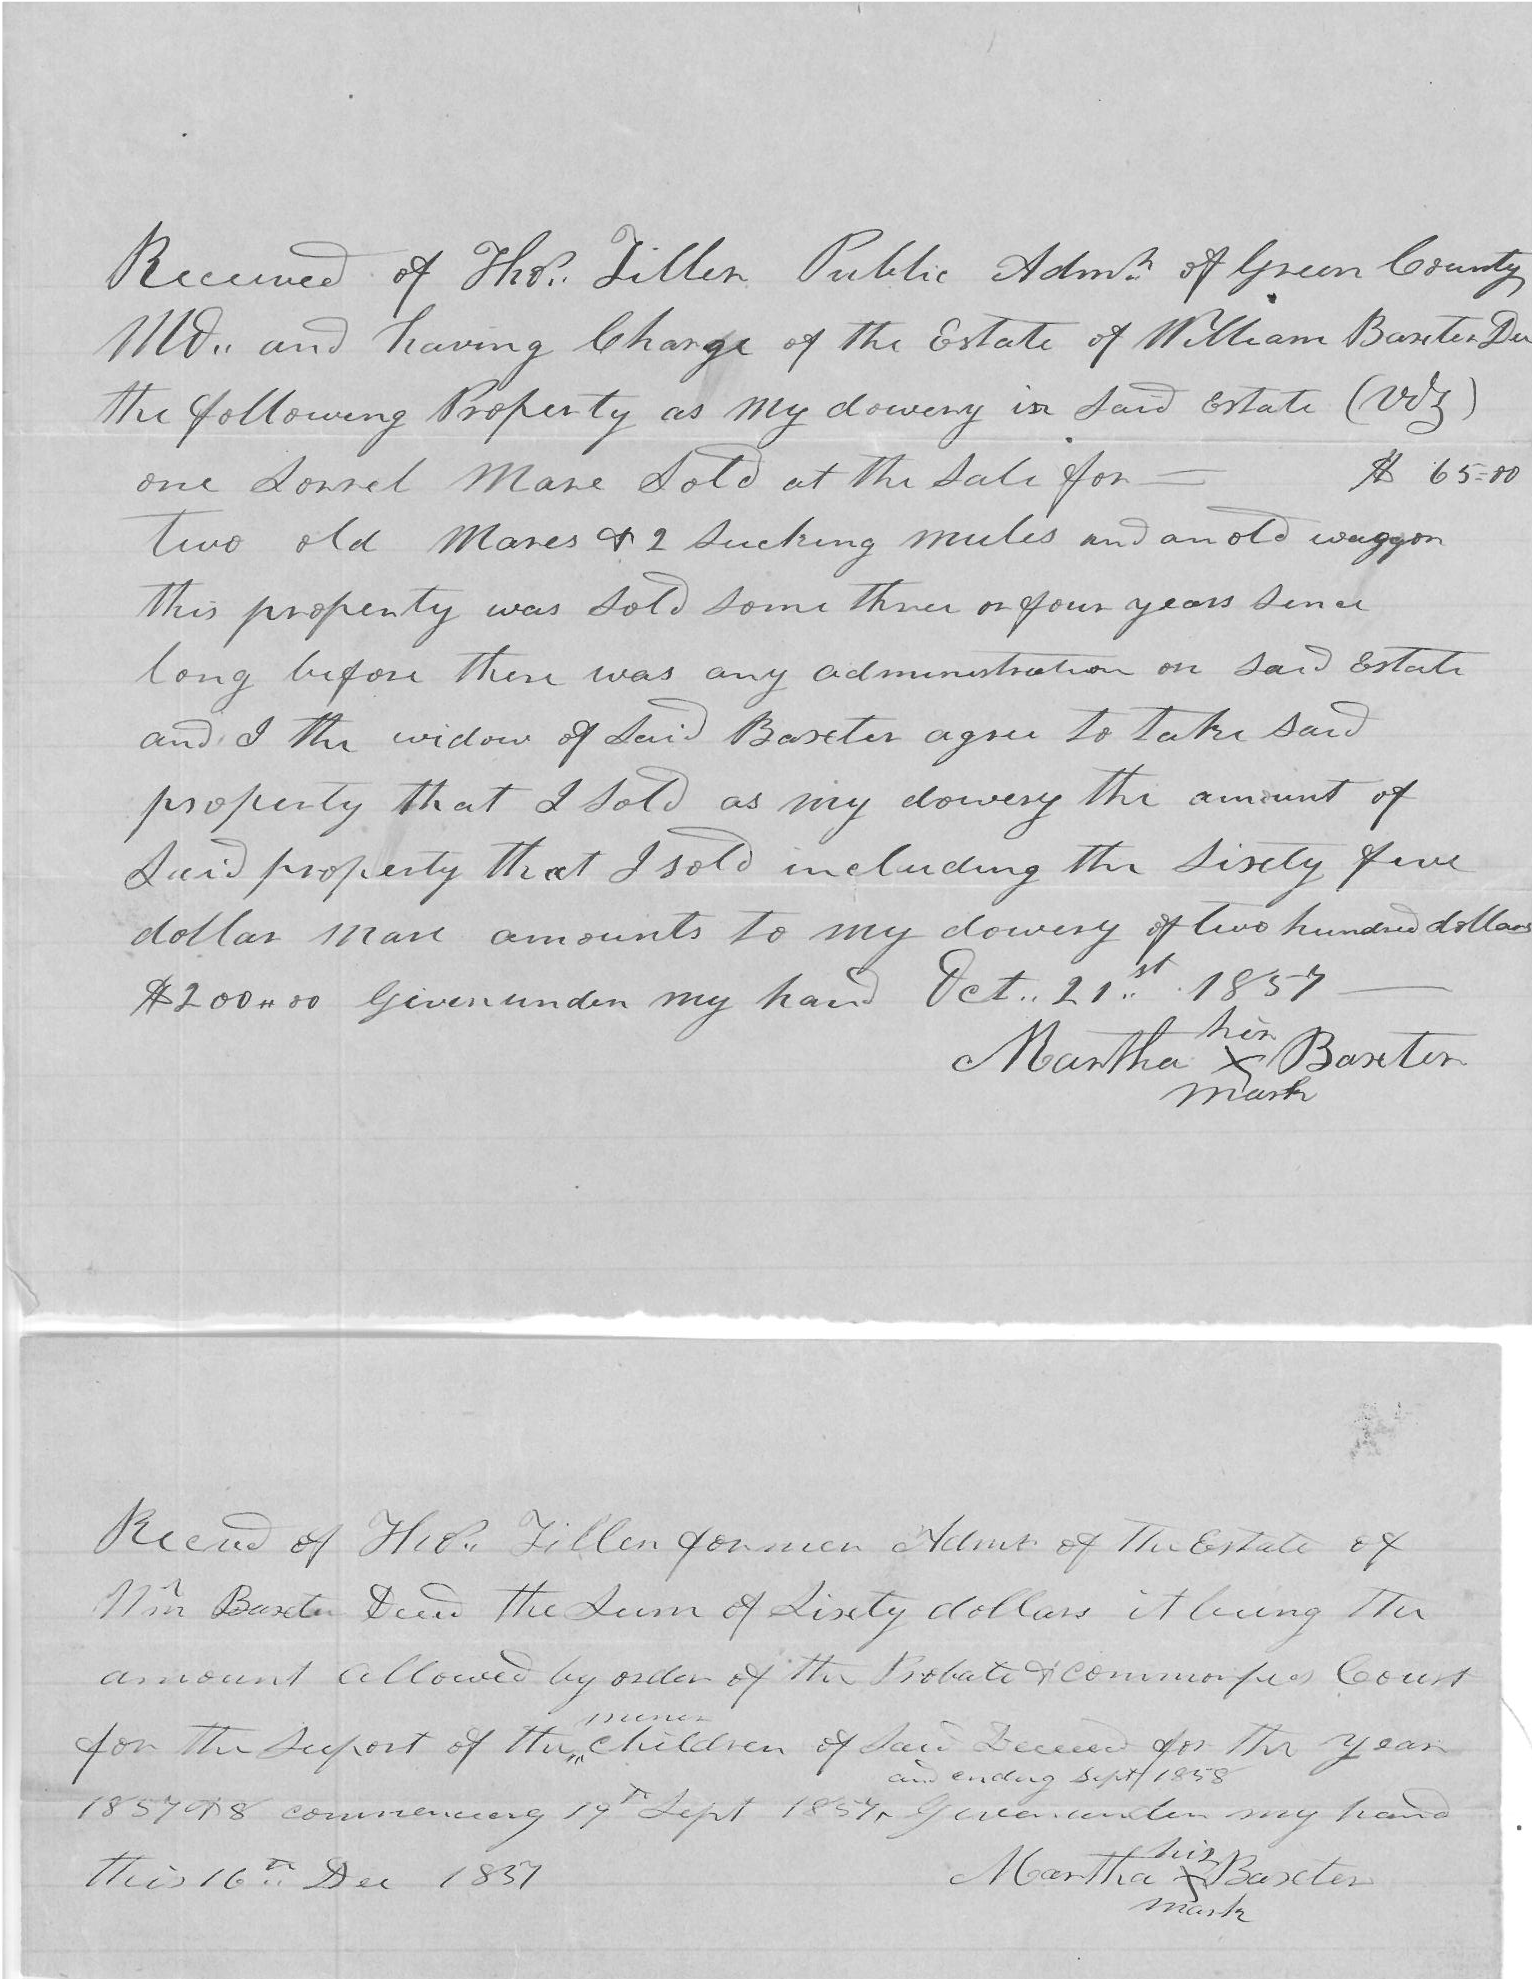 Received of Thos.. Tiller Public Admr.. of Green County
Mo.. and having Charge of the Estate of William Baxter De
the following Property as my dowery in said Estate (viz)
one Sorrel Mare Sold at the Sale for — $ 65=00
two old Mares & 2 sucking mules and an old waggon
this property was sold some three or four years since
long before there was any administration on said Estate
and I the widow of said Baxter agree to take said
property that I sold as my dowery the amount of
Said property that I sold including the Sixty five
dollar mare amounts to my dowery of two hundred dollars
$200..00 Given under my hand Oct.. 21..st 1857 —
her
Martha X Baxter
mark
Recevd of Thos.. Tiller former Admr of the Estate of
Wm Baxter Decd the Sum of Sixty dollars it being the
amount allowed by order of the Probate & common pleas Court
minor
for the suport of the children of said Deceed for the year
and ending Sept 1858
1857 & 8 commencing 19th Sept 1857 Given under my hand
this 16th.. Dec 1857
her
Martha X Baxter
mark